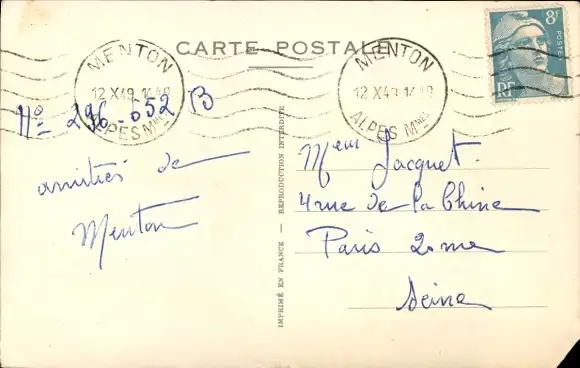 CARTE POSTALE
MENTON
12 X 49
ALPES Mmes
MENTON
12 X 49
ALPES Mmes
8F
POSTES
RF
No 296-652 B
amitiés de
Menton
IMPRIMÉ EN FRANCE — REPRODUCTION INTERDITE
Meur Jacquet.
4 rue de la Chine
Paris 20me
Seine